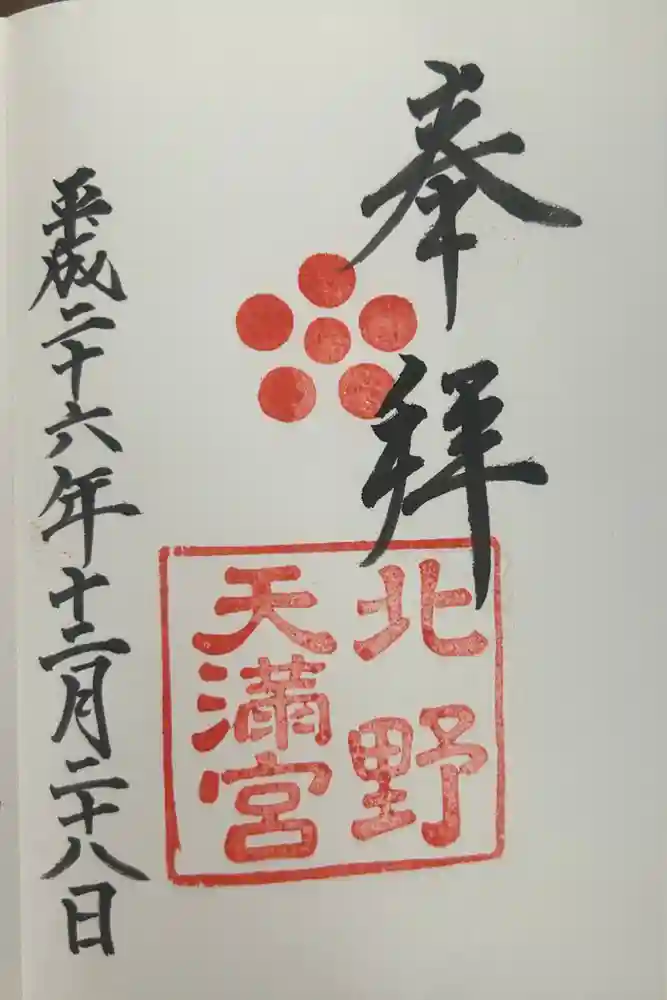 奉拝
北野
天満宮
平成二十六年十二月二十八日